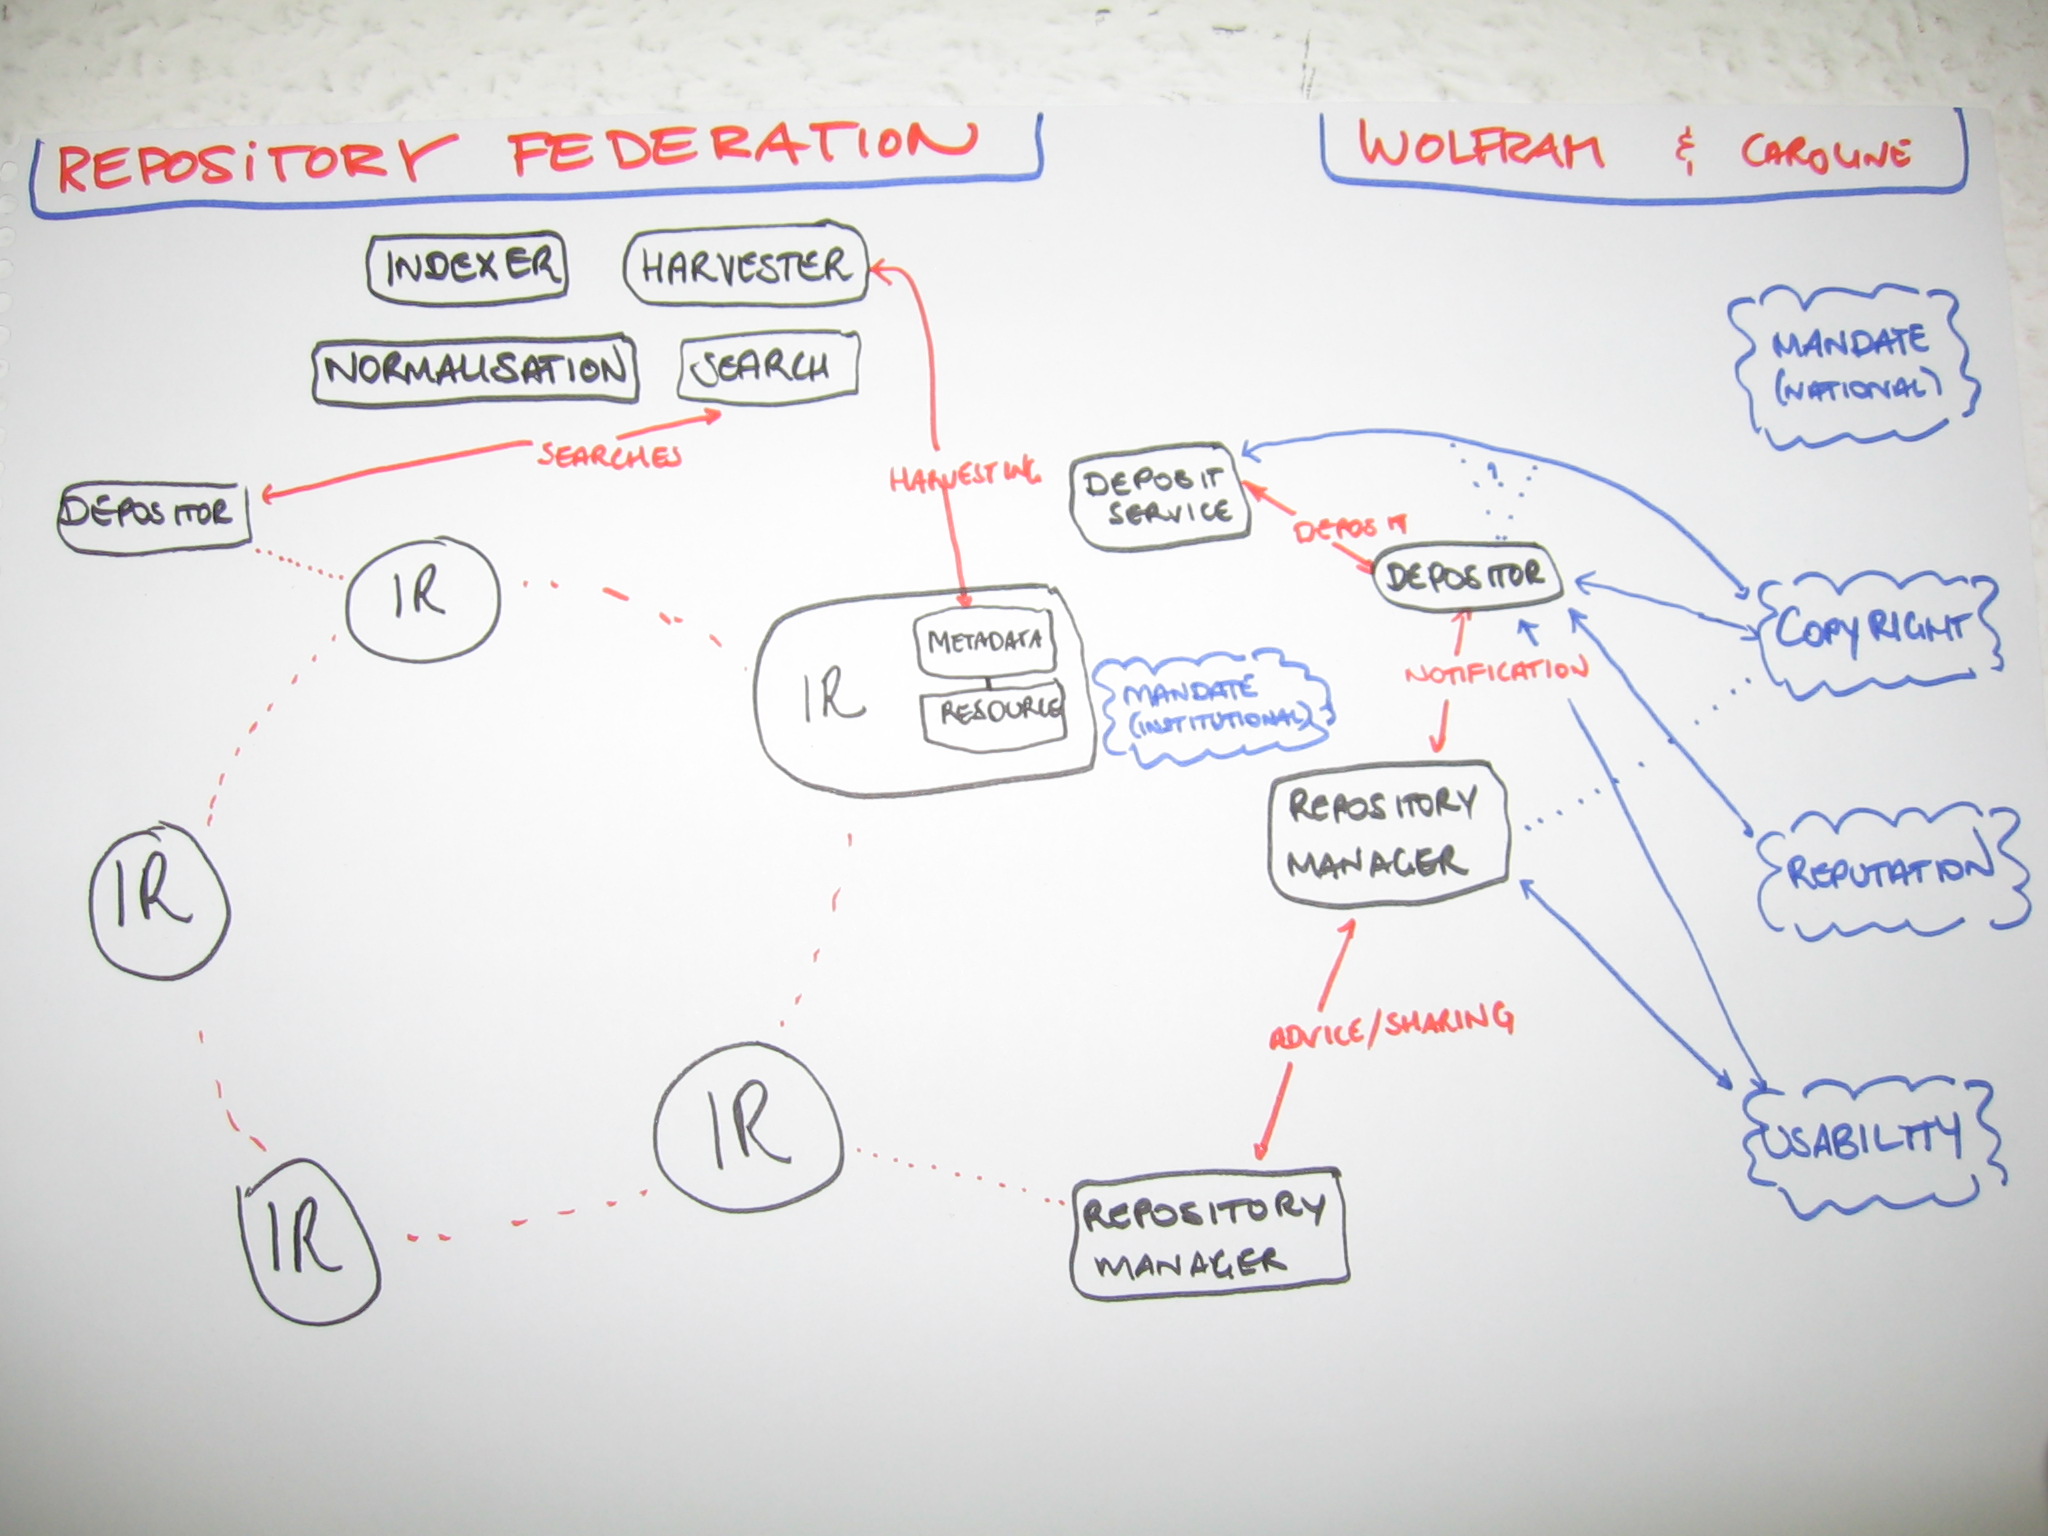 REPOSITORY FEDERATION
WOLFRAM & CAROLINE
INDEXER
HARVESTER
NORMALISATION
SEARCH
MANDATE
(NATIONAL)
SEARCHES
HARVESTING
DEPOSITOR
DEPOSIT
SERVICE
DEPOSIT
DEPOSITOR
?
IR
IR
METADATA
RESOURCE
MANDATE
(INSTITUTIONAL)
NOTIFICATION
COPYRIGHT
REPOSITORY
MANAGER
REPUTATION
IR
ADVICE/SHARING
IR
USABILITY
IR
REPOSITORY
MANAGER